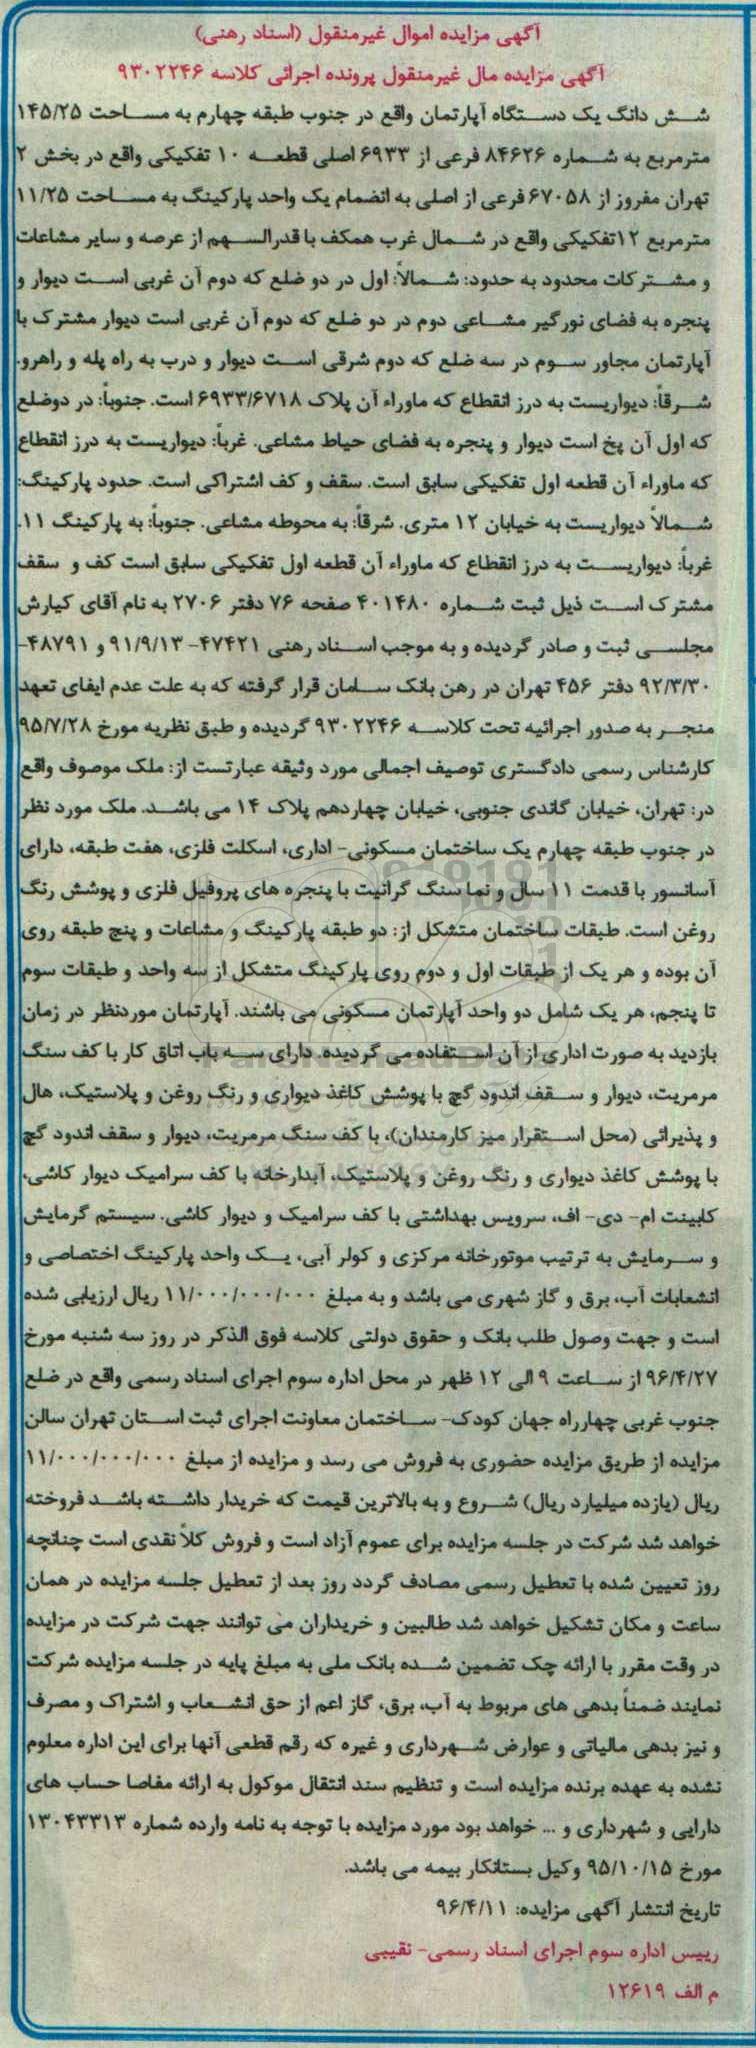 آگهی مزایده اموال غیرمنقول (اسناد رهنی)
آگهی مزایده مال غیرمنقول پرونده اجرائی کلاسه ۹۳۰۲۲۴۶
شش دانگ یک دستگاه آپارتمان واقع در جنوب طبقه چهارم به مساحت ۱۴۵/۲۵
مترمربع به شماره ۸۴۶۲۶ فرعی از ۶۹۳۳ اصلی قطعه ۱۰ تفکیکی واقع در بخش ۲
تهران مفروز از ۶۷۰۵۸ فرعی از اصلی به انضمام یک واحد پارکینگ به مساحت ۱۱/۲۵
مترمربع ۱۲تفکیکی واقع در شمال غرب همکف با قدرالسهم از عرصه و سایر مشاعات
و مشترکات محدود به حدود: شمالاً: اول در دو ضلع که دوم آن غربی است دیوار و
پنجره به فضای نورگیر مشاعی دوم در دو ضلع که دوم آن غربی است دیوار مشترک با
آپارتمان مجاور سوم در سه ضلع که دوم شرقی است دیوار و درب به راه پله و راهرو.
شرقاً: دیواریست به درز انقطاع که ماوراء آن پلاک ۶۹۳۳/۶۷۱۸ است. جنوباً: در دوضلع
که اول آن پخ است دیوار و پنجره به فضای حیاط مشاعی. غرباً: دیواریست به درز انقطاع
که ماوراء آن قطعه اول تفکیکی سابق است. سقف و کف اشتراکی است. حدود پارکینگ:
شمالاً دیواریست به خیابان ۱۲ متری. شرقاً: به محوطه مشاعی. جنوباً: به پارکینگ ۱۱.
غرباً: دیواریست به درز انقطاع که ماوراء آن قطعه اول تفکیکی سابق است کف و سقف
مشترک است ذیل ثبت شماره ۴۰۱۴۸۰ صفحه ۷۶ دفتر ۲۷۰۶ به نام آقای کیارش
مجلسی ثبت و صادر گردیده و به موجب اسناد رهنی ۴۷۴۲۱- ۹۱/۹/۱۳ و ۴۸۷۹۱-
۹۲/۳/۳۰ دفتر ۴۵۶ تهران در رهن بانک سامان قرار گرفته که به علت عدم ایفای تعهد
منجر به صدور اجرائیه تحت کلاسه ۹۳۰۲۲۴۶ گردیده و طبق نظریه مورخ ۹۵/۷/۲۸
کارشناس رسمی دادگستری توصیف اجمالی مورد وثیقه عبارتست از: ملک موصوف واقع
در: تهران، خیابان گاندی جنوبی، خیابان چهاردهم پلاک ۱۴ می باشد. ملک مورد نظر
در جنوب طبقه چهارم یک ساختمان مسکونی- اداری، اسکلت فلزی، هفت طبقه، دارای
آسانسور با قدمت ۱۱ سال و نما سنگ گرانیت با پنجره های پروفیل فلزی و پوشش رنگ
روغن است. طبقات ساختمان متشکل از: دو طبقه پارکینگ و مشاعات و پنج طبقه روی
آن بوده و هر یک از طبقات اول و دوم روی پارکینگ متشکل از سه واحد و طبقات سوم
تا پنجم، هر یک شامل دو واحد آپارتمان مسکونی می باشند. آپارتمان موردنظر در زمان
بازدید به صورت اداری از آن استفاده می گردیده. دارای سه باب اتاق کار با کف سنگ
مرمریت، دیوار و سقف اندود گچ با پوشش کاغذ دیواری و رنگ روغن و پلاستیک، هال
و پذیرائی (محل استقرار میز کارمندان)، با کف سنگ مرمریت، دیوار و سقف اندود گچ
با پوشش کاغذ دیواری و رنگ روغن و پلاستیک، آبدارخانه با کف سرامیک دیوار کاشی،
کابینت ام- دی- اف، سرویس بهداشتی با کف سرامیک و دیوار کاشی. سیستم گرمایش
و سرمایش به ترتیب موتورخانه مرکزی و کولر آبی، یک واحد پارکینگ اختصاصی و
انشعابات آب، برق و گاز شهری می باشد و به مبلغ ۱۱/۰۰۰/۰۰۰/۰۰۰ ریال ارزیابی شده
است و جهت وصول طلب بانک و حقوق دولتی کلاسه فوق الذکر در روز سه شنبه مورخ
۹۶/۴/۲۷ از ساعت ۹ الی ۱۲ ظهر در محل اداره سوم اجرای اسناد رسمی واقع در ضلع
جنوب غربی چهارراه جهان کودک- ساختمان معاونت اجرای ثبت استان تهران سالن
مزایده از طریق مزایده حضوری به فروش می رسد و مزایده از مبلغ ۱۱/۰۰۰/۰۰۰/۰۰۰
ریال (یازده میلیارد ریال) شروع و به بالاترین قیمت که خریدار داشته باشد فروخته
خواهد شد شرکت در جلسه مزایده برای عموم آزاد است و فروش کلاً نقدی است چنانچه
روز تعیین شده با تعطیل رسمی مصادف گردد روز بعد از تعطیل جلسه مزایده در همان
ساعت و مکان تشکیل خواهد شد طالبین و خریداران می توانند جهت شرکت در مزایده
در وقت مقرر با ارائه چک تضمین شده بانک ملی به مبلغ پایه در جلسه مزایده شرکت
نمایند ضمناً بدهی های مربوط به آب، برق، گاز اعم از حق انشعاب و اشتراک و مصرف
و نیز بدهی مالیاتی و عوارض شهرداری و غیره که رقم قطعی آنها برای این اداره معلوم
نشده به عهده برنده مزایده است و تنظیم سند انتقال موکول به ارائه مفاصا حساب های
دارایی و شهرداری و ... خواهد بود مورد مزایده با توجه به نامه وارده شماره ۱۳۰۴۳۳۱۳
مورخ ۹۵/۱۰/۱۵ وکیل بستانکار بیمه می باشد.
تاریخ انتشار آگهی مزایده: ۹۶/۴/۱۱
رییس اداره سوم اجرای اسناد رسمی- نقیبی
م الف ۱۲۶۱۹